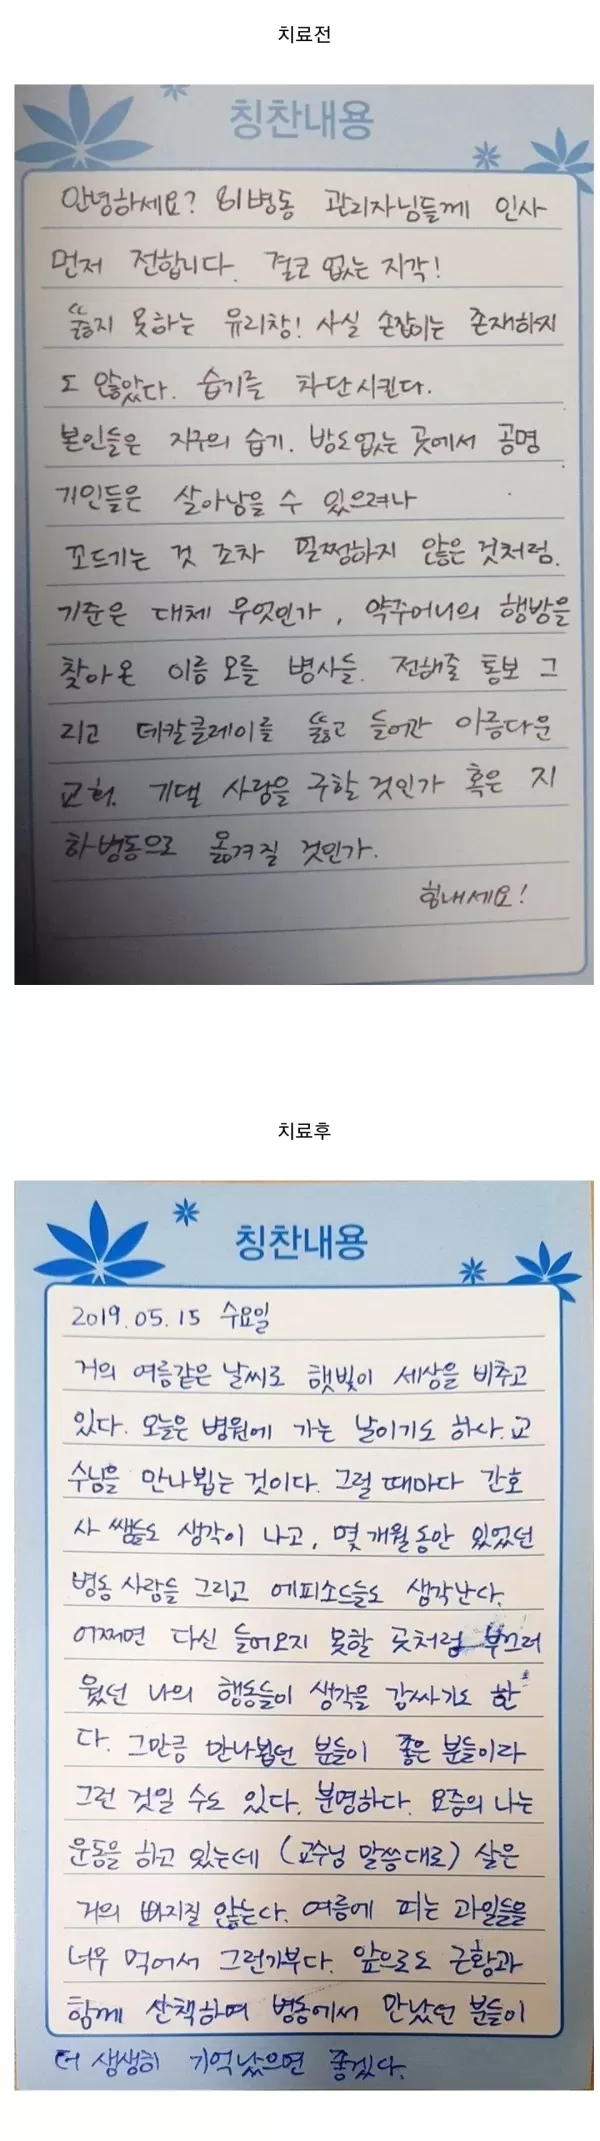 치료전
칭찬내용
안녕하세요? 81병동 관리자님들께 인사
먼저 전합니다. 결코 없는 지각!
뚫지 못하는 유리창! 사실 손잡이는 존재하지
도 않았다. 습기를 차단시킨다.
본인들은 지구의 습기. 방도없는 곳에서 공명
기인들은 살아남을 수 있으려나
꼬드기는 것 조차 멀쩡하지 않은 것처럼.
기준은 대체 무엇인가, 약주머니의 행방을
찾아온 이름 모를 병사들. 전해줄 통보 그
리고 데칼클레이를 뚫고 들어간 아름다운
교회. 기댈 사람을 구할 것인가 혹은 지
하병동으로 옮겨질 것인가.
힘내세요!
치료후
칭찬내용
2019.05.15 수요일
거의 여름같은 날씨로 햇빛이 세상을 비추고
있다. 오늘은 병원에 가는 날이기도 하다. 교
수님을 만나뵙는 것이다. 그럴 때마다 간호
사 쌤들도 생각이 나고, 몇 개월동안 있었던
병동 사람들 그리고 에피소드들도 생각난다.
어쩌면 다신 들어오지 못할 곳처럼 부끄러
웠던 나의 행동들이 생각을 감싸기도 한
다. 그만큼 만나뵙던 분들이 좋은 분들이라
그런 것일 수도 있다. 분명하다. 요즘의 나는
운동을 하고 있는데 (교수님 말씀대로) 살은
거의 빠지질 않는다. 여름에 피는 과일들을
너무 먹어서 그런가부다. 앞으로도 근황과
함께 산책하며 병동에서 만났던 분들이
더 생생히 기억났으면 좋겠다.